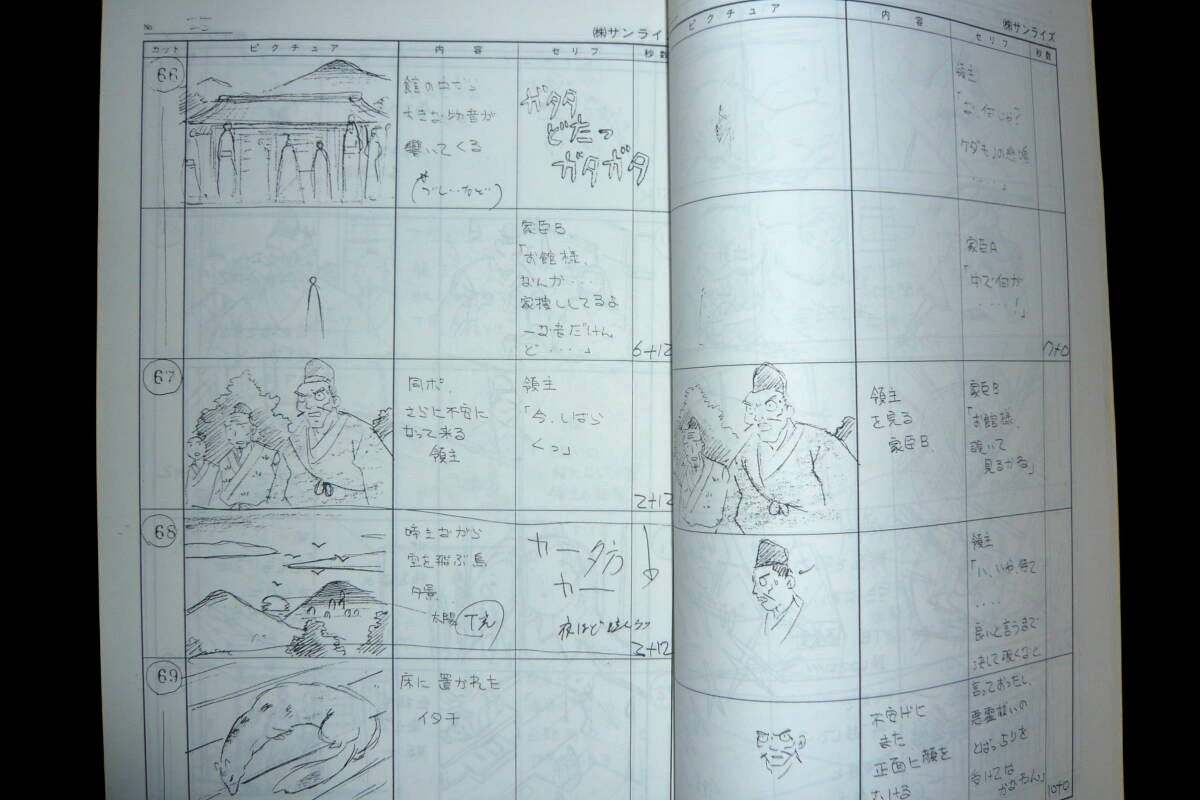 No.
㈱サンライ
カット ピクチュア 内容 セリフ 秒数
66
館の中から
大きな物音が
響いてくる
ガタタ
どたっ
ガタガタ
家臣B
「お館様、
なんか・・・
家捜ししてるよ
ーな音だけん
ど・・・・」
6+12
67
同ポ、
さらに不安に
なって来る
領主
領主
「今、しばら
くっ」
2+12
68
啼きながら
空を飛ぶ鳥
夕景
太陽 T光
カー
カー
2+12
69
床に置かれた
イタチ
㈱サンライズ
ピクチュア 内容 セリフ 秒数
領主
「な、何じゃ?
ケダモノの
・・・・」
家臣A
「中で何が
・・・・!」
7+0
領主
を見る
家臣B
家臣B
「お館様、
覗いて
見るかね」
領主
「い、いや、待て
・・・・
良いと言うまで
決して覗くなと
言っておったし、
悪霊払いの
とばっちりを
受けては
かなわん」
10+0
不安げに
また
正面に顔を
むける